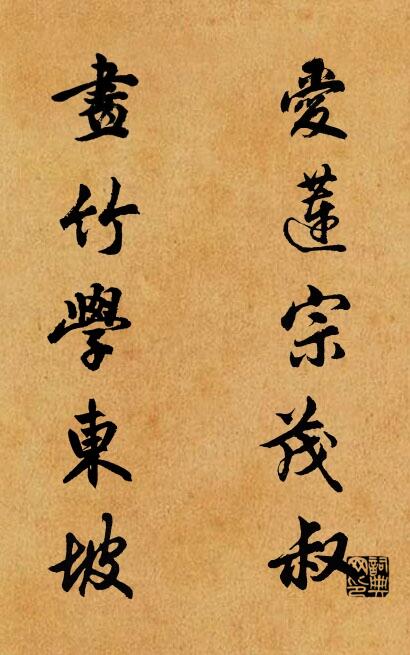 愛蓮宗茂叔
畫竹學東坡
詞典网印